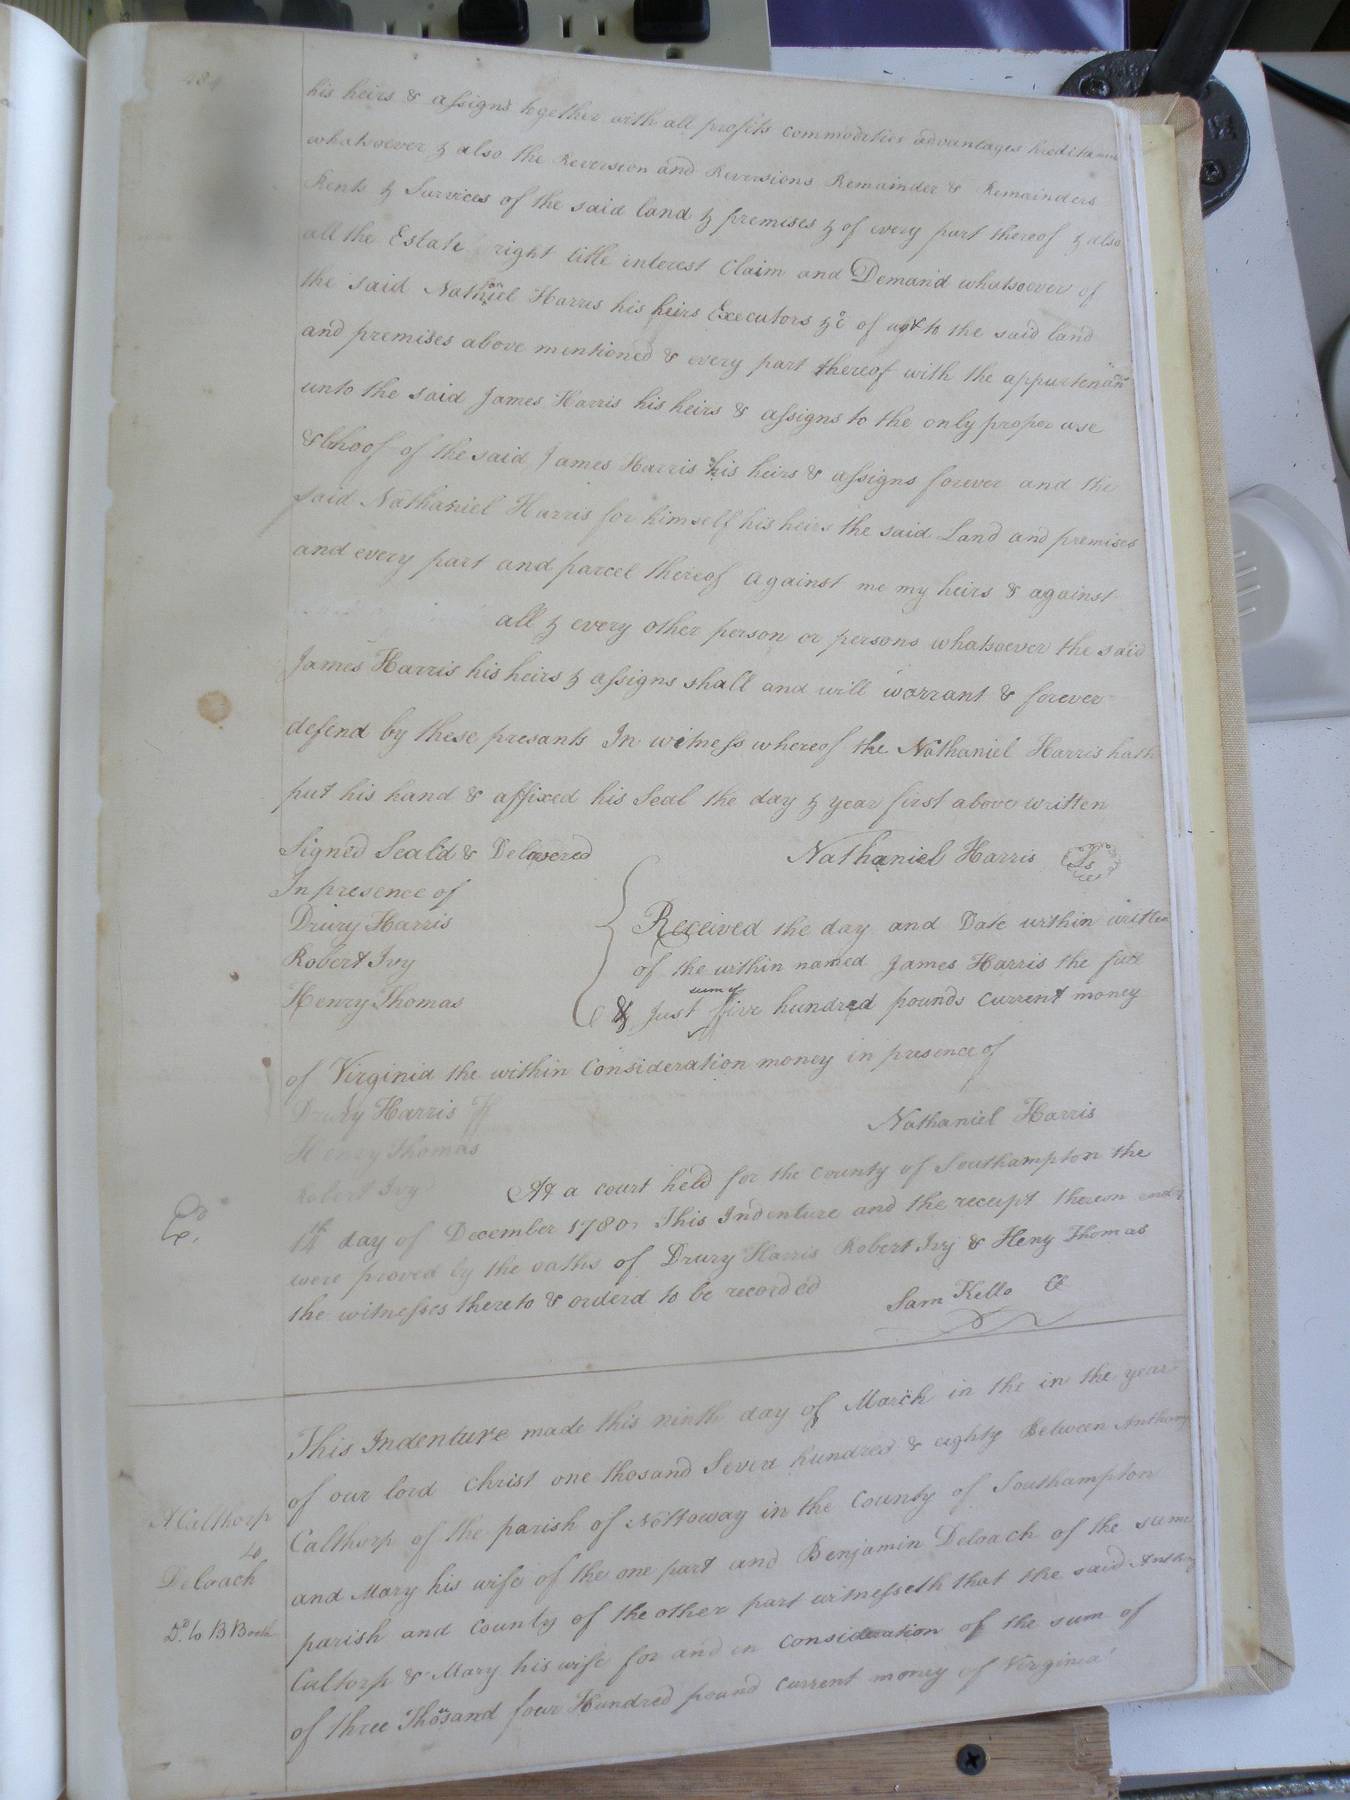 his heirs & assigns together with all profits commodities advantages hereditamts
whatsoever & also the Reversion and Reversions Remainder & Remainders
Rents & Survices of the said land & premises & of every part thereof & also
all the Estate right title interest Claim and Demand whatsoever of
the said Nathaniel Harris his heirs Executors &c of and to the said land
and premises above mentioned & every part thereof with the appurtenan
unto the said James Harris his heirs & assigns to the only proper use
& bhoof of the said James Harris his heirs & assigns forever and the
said Nathaniel Harris for himself his heirs the said Land and premises
and every part and parcel thereof against me my heirs & against
all & every other person or persons whatsoever the said
James Harris his heirs & assigns shall and will warrant & forever
defend by these presants In witness whereof the Nathaniel Harris hath
put his hand & affixed his Seal the day & year first above written
Signed Seald & Delivered
In presence of
Drury Harris
Robert Ivy
Henry Thomas
Nathaniel Harris Ls
Received the day and Date within written
of the within named James Harris the full
& Just sum of five hundred pounds current money
of Virginia the within Consideration money in presence of
Drury Harris
Henry Thomas
Robert Ivy
Nathaniel Harris
At a court held for the county of Southampton the
day of December 1780. This Indenture and the receipt thereon
were proved by the oaths of Drury Harris Robert Ivy & Heny Thomas
the witnesses thereto & orderd to be recorded
Sam Kello
Exd.
This Indenture made this ninth day of March in the in the year
of our lord Christ one thosand Seven hundred & eighty Between Anthony
Calthorp of the parish of Nottoway in the County of Southampton
and Mary his wife of the one part and Benjamin Deloach of the same
parish and County of the other part witnesseth that the said Anthny
Caltorp & Mary his wife for and in consideration of the sum of
of three Thousand four Hundred pound current money of Virginia
A Calthorp
to
Deloach
Do. to B Booth